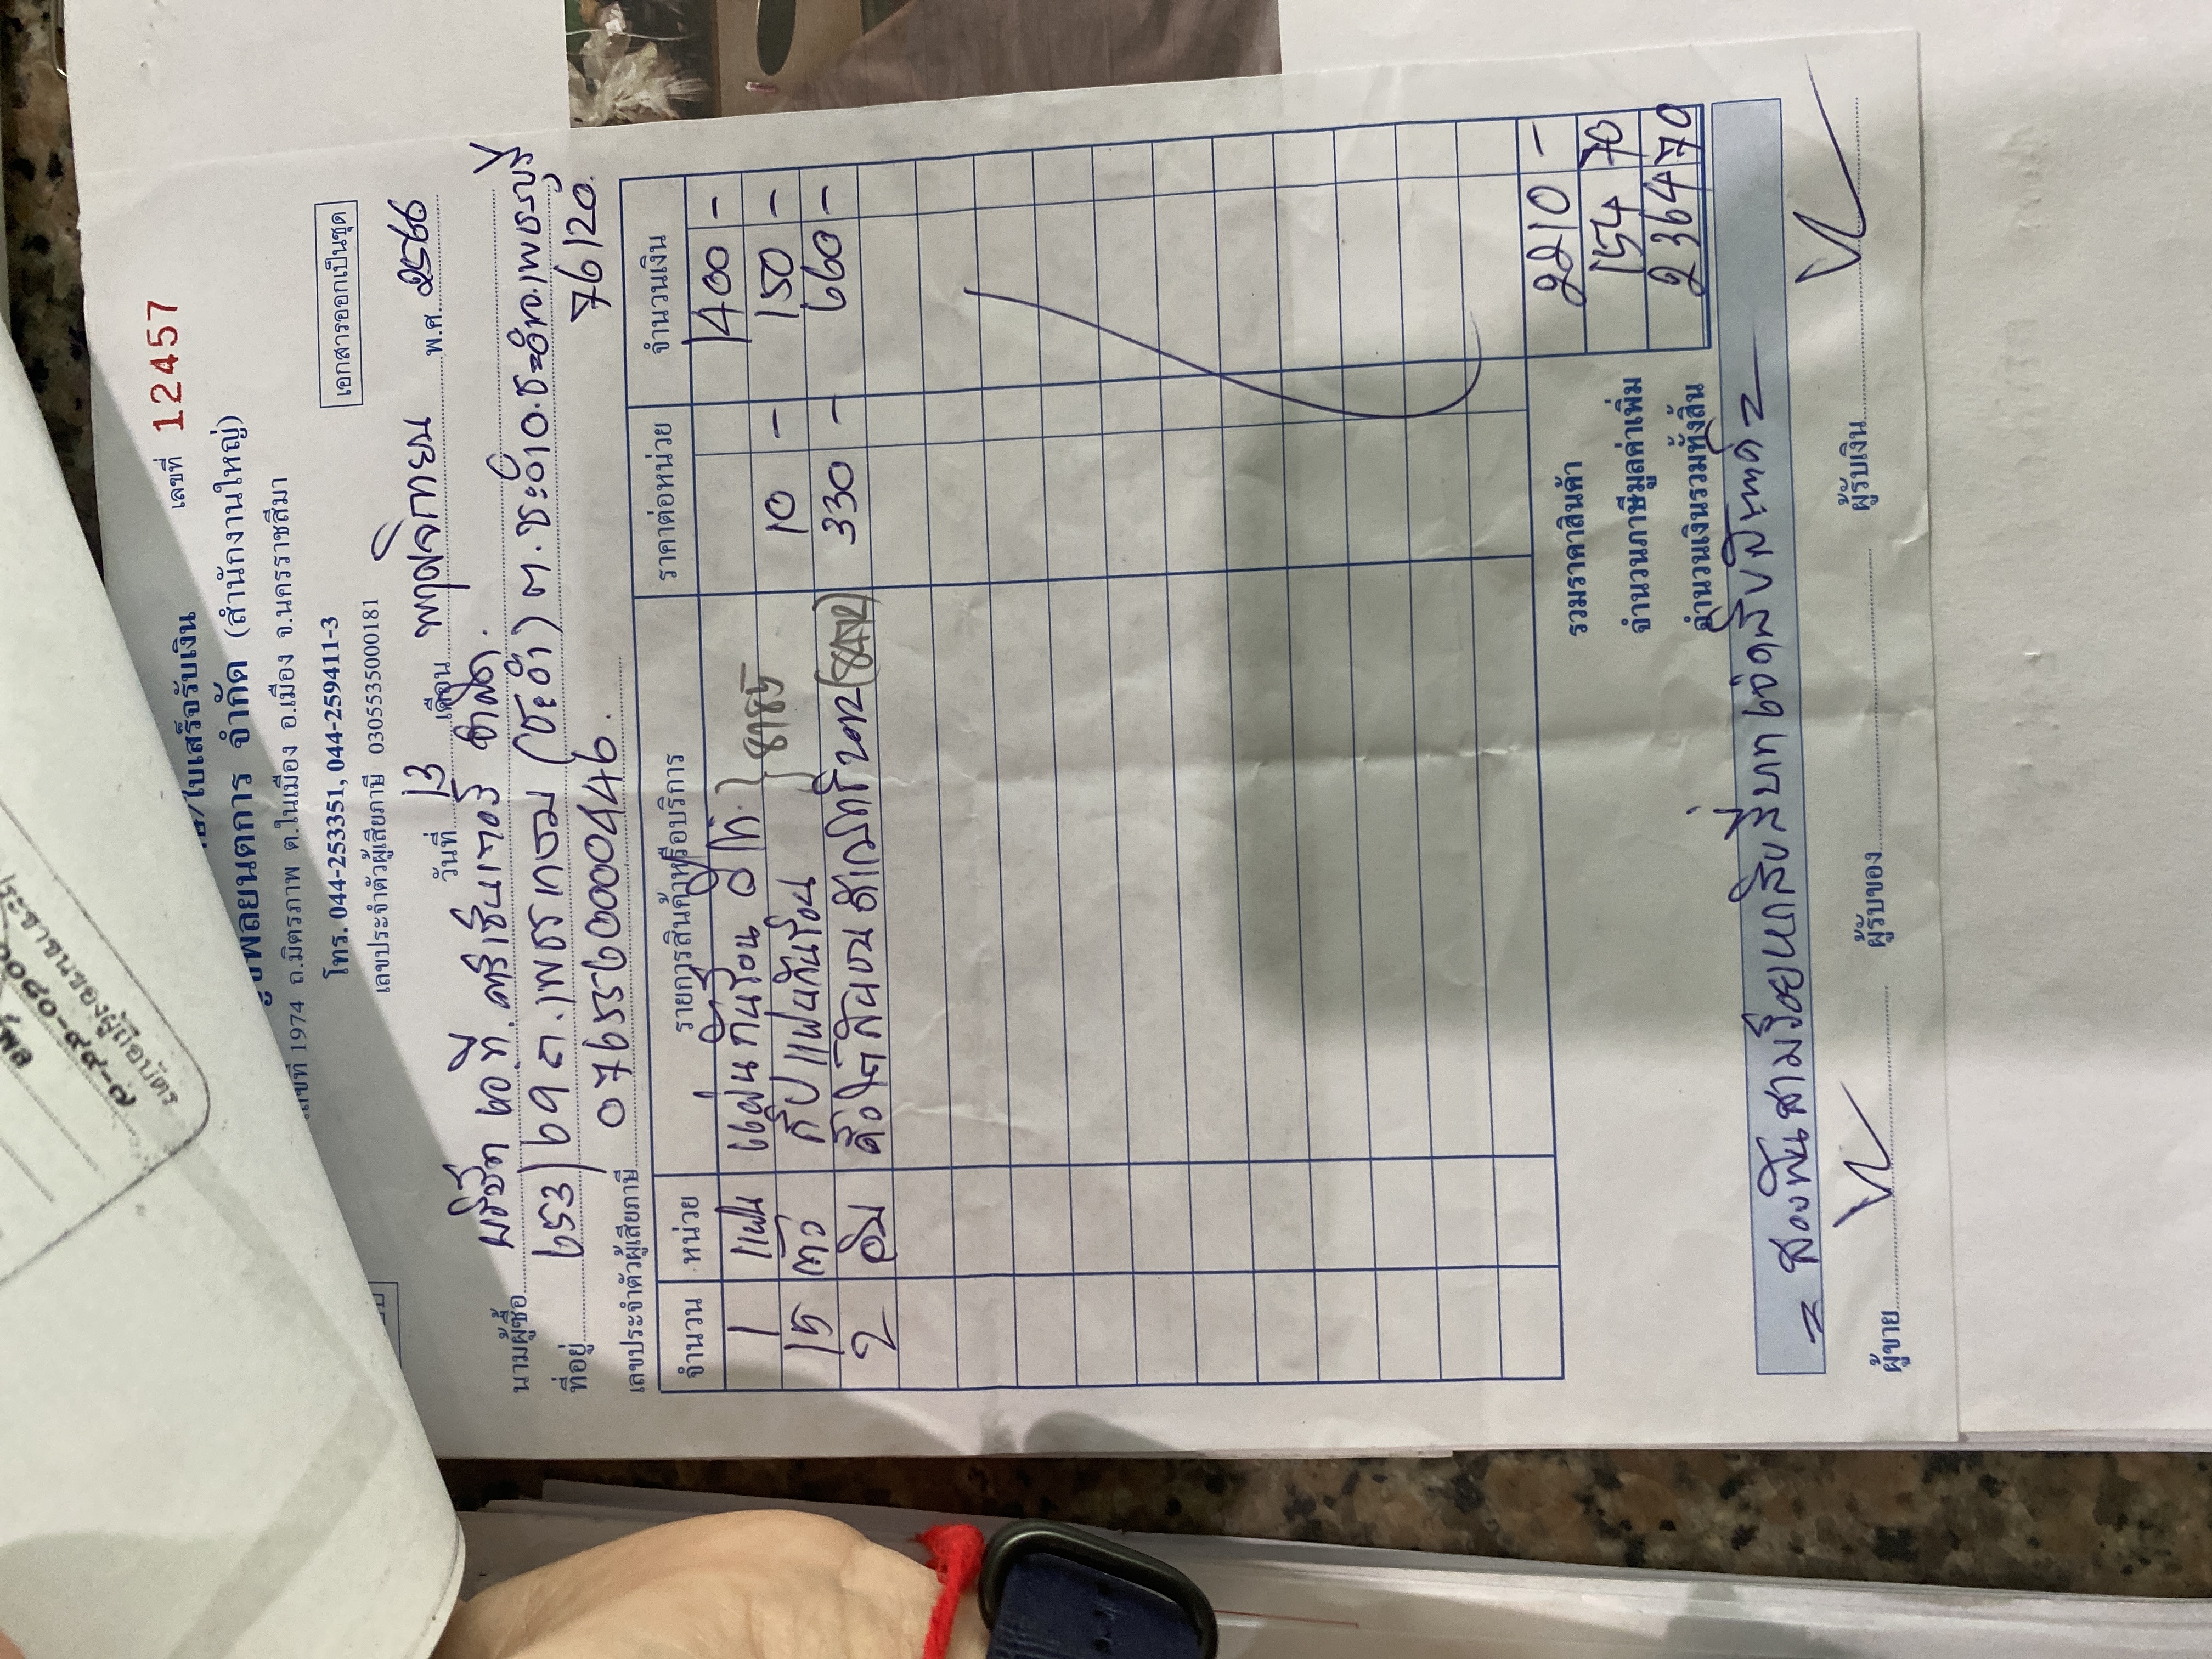 เลขที่ 12457
/ใบเสร็จรับเงิน
พลยนตการ จำกัด (สำนักงานใหญ่)
เลขที่ 1974 ถ.มิตรภาพ ต.ในเมือง อ.เมือง จ.นครราชสีมา
โทร. 044-253351, 044-259411-3
เอกสารออกเป็นชุด
เลขประจำตัวผู้เสียภาษี 0305535000181
วันที่ 13 เดือน พฤศจิกายน พ.ศ. 2566
นามผู้ซื้อ บริษัท
ที่อยู่ 653/69 ถ.เพชรเกษม (ชะอำ) ต.ชะอำ อ.ชะอำ จ.เพชรบุรี
76120
เลขประจำตัวผู้เสียภาษี 0765560000446
จำนวน หน่วย รายการสินค้าหรือบริการ ราคาต่อหน่วย จำนวนเงิน
1 แผ่น แผ่นกันร้อน 1400 -
15 ตัว กิ๊ปแผ่นกันร้อน 10 - 150 -
2 330 - 660 -
รวมราคาสินค้า 2210 -
จำนวนภาษีมูลค่าเพิ่ม 154 70
จำนวนเงินรวมทั้งสิ้น 2364 70
= สองพันสามร้อยหกสิบสี่บาทเจ็ดสิบสตางค์ =
ผู้ขาย ผู้รับของ ผู้รับเงิน
ประชาชนของผู้ถือบัตร
๐๐๘๐-๙๙-๗